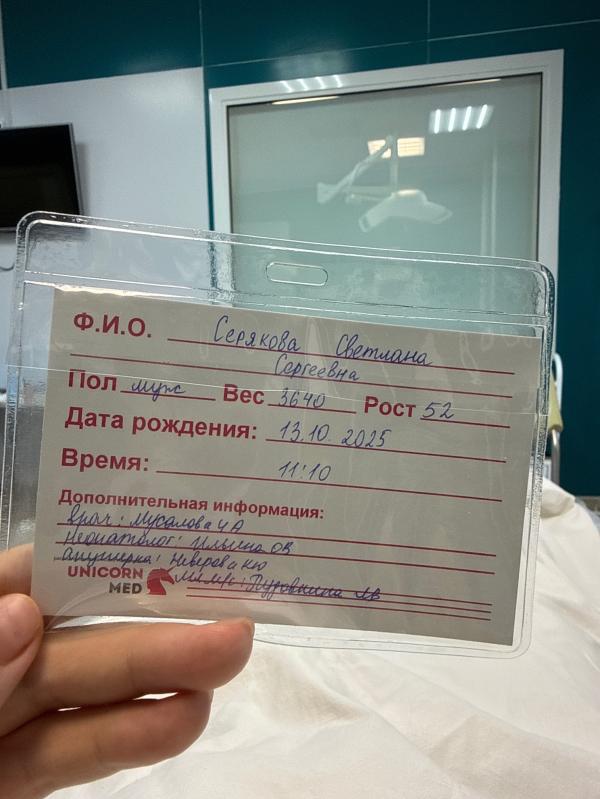 Ф.И.О. Серякова Светлана
Сергеевна
Пол муж Вес 3640 Рост 52
Дата рождения: 13.10.2025
Время: 11:10
Дополнительная информация:
врач: Мусалова ЧА
неонатолог: Ильина ОВ
акушерка: Неверова НЮ
UNICORN
MED